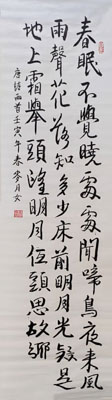 春眠不覺曉處處聞啼鳥夜來風
雨聲花落知多少床前明月光疑是
地上霜舉頭望明月低頭思故鄉
唐詩兩首壬寅年春月